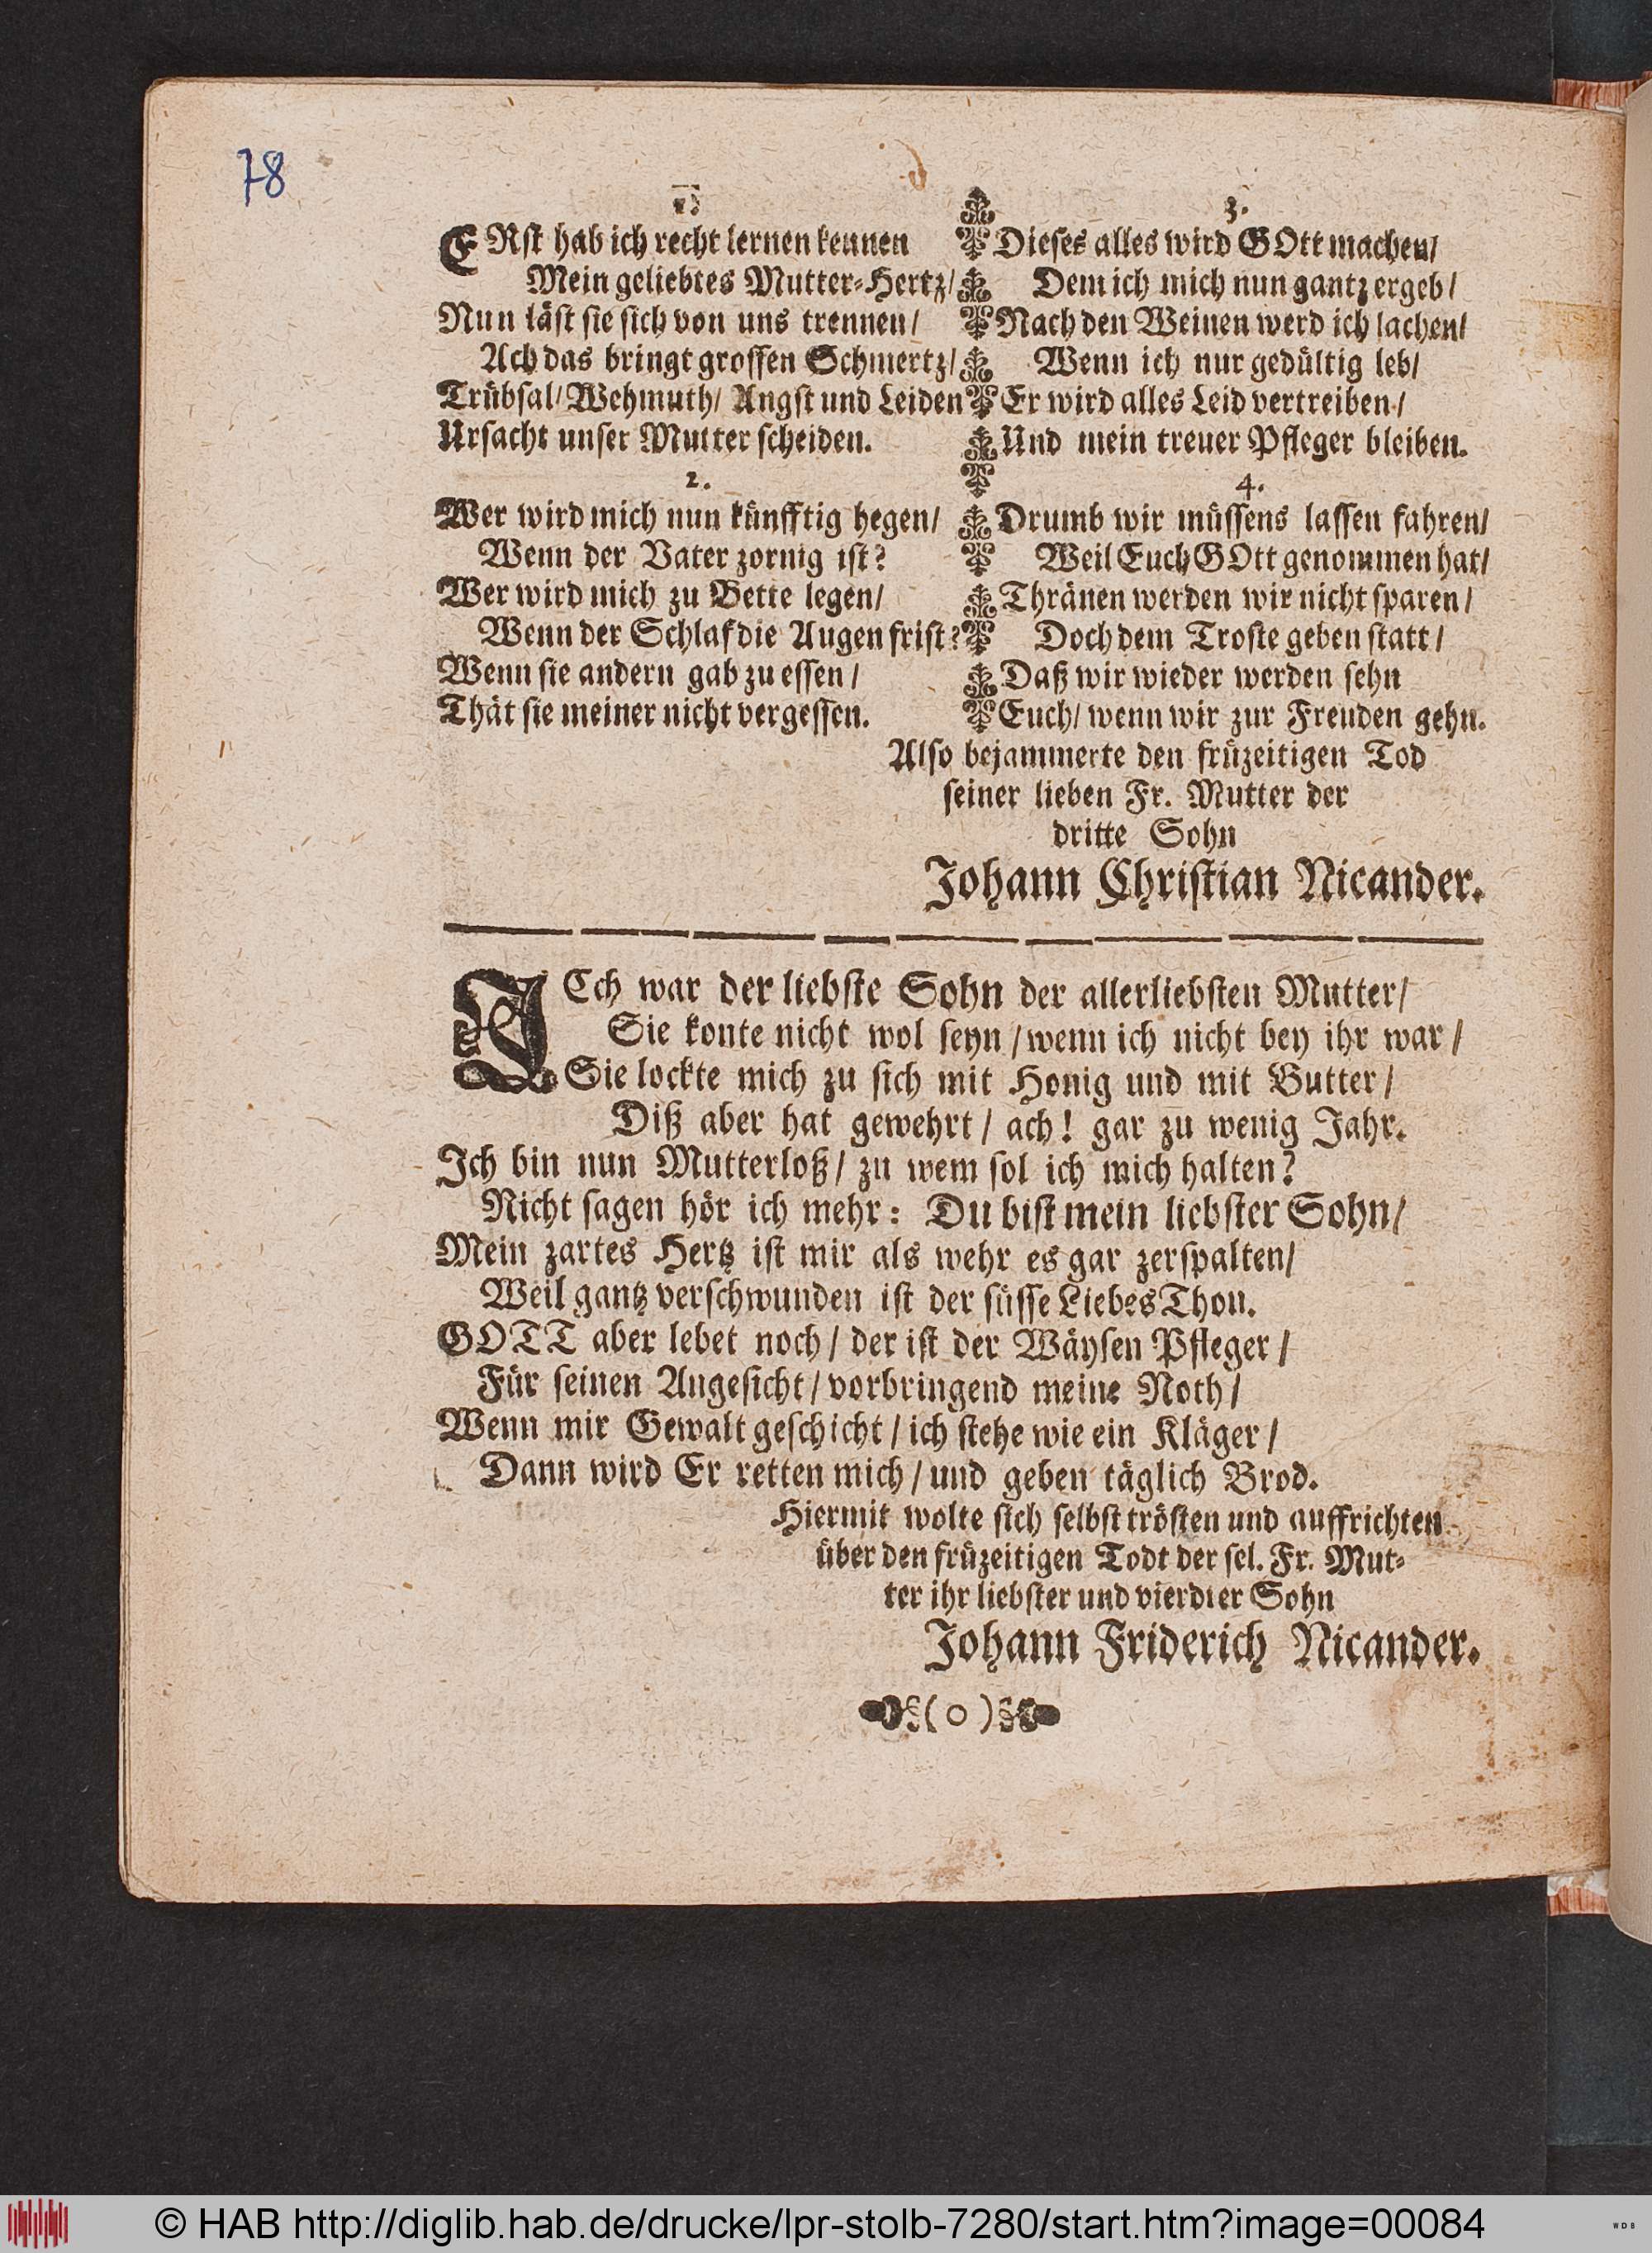 78
1.
ERst hab ich recht lernen kennen
Mein geliebtes Mutter-Hertz/
Nun läst sie sich von uns trennen/
Ach das bringt grossen Schmertz/
Trübsal/ Wehmuth/ Angst und Leiden
Ursacht unser Mutter scheiden.
2.
Wer wird mich nun künfftig hegen/
Wenn der Vater zornig ist?
Wer wird mich zu Bette legen/
Wenn der Schlaf die Augen frist?
Wenn sie andern gab zu essen/
Thät sie meiner nicht vergessen.
3.
Dieses alles wird GOtt machen/
Dem ich mich nun gantz ergeb/
Nach den Weinen werd ich lachen/
Wenn ich nur gedültig leb/
Er wird alles Leid vertreiben/
Und mein treuer Pfleger bleiben.
4.
Drumb wir müssens lassen fahren/
Weil Euch GOtt genommen hat/
Thränen werden wir nicht sparen/
Doch dem Troste geben statt/
Daß wir wieder werden sehn
Euch/ wenn wir zur Freuden gehn.
Also bejammerte den früzeitigen Tod
seiner lieben Fr. Mutter der
dritte Sohn
Johann Christian Nicander.
ICch war der liebste Sohn der allerliebsten Mutter/
Sie konte nicht wol seyn/ wenn ich nicht bey ihr war/
Sie lockte mich zu sich mit Honig und mit Butter/
Diß aber hat gewehrt/ ach! gar zu wenig Jahr.
Ich bin nun Mutterloß/ zu wem sol ich mich halten?
Nicht sagen hör ich mehr: Du bist mein liebster Sohn/
Mein zartes Hertz ist mir als wehr es gar zerspalten/
Weil gantz verschwunden ist der süsse Liebes Thon.
GOTT aber lebet noch/ der ist der Wäysen Pfleger/
Für seinen Angesicht/ vorbringend meine Noth/
Wenn mir Gewalt geschicht/ ich stehe wie ein Kläger/
Dann wird Er retten mich/ und geben täglich Brod.
Hiermit wolte sich selbst trösten und auffrichten
über den früzeitigen Todt der sel. Fr. Mut-
ter ihr liebster und vierdter Sohn
Johann Friderich Nicander.
§( o )§
© HAB http://diglib.hab.de/drucke/lpr-stolb-7280/start.htm?image=00084
WDB